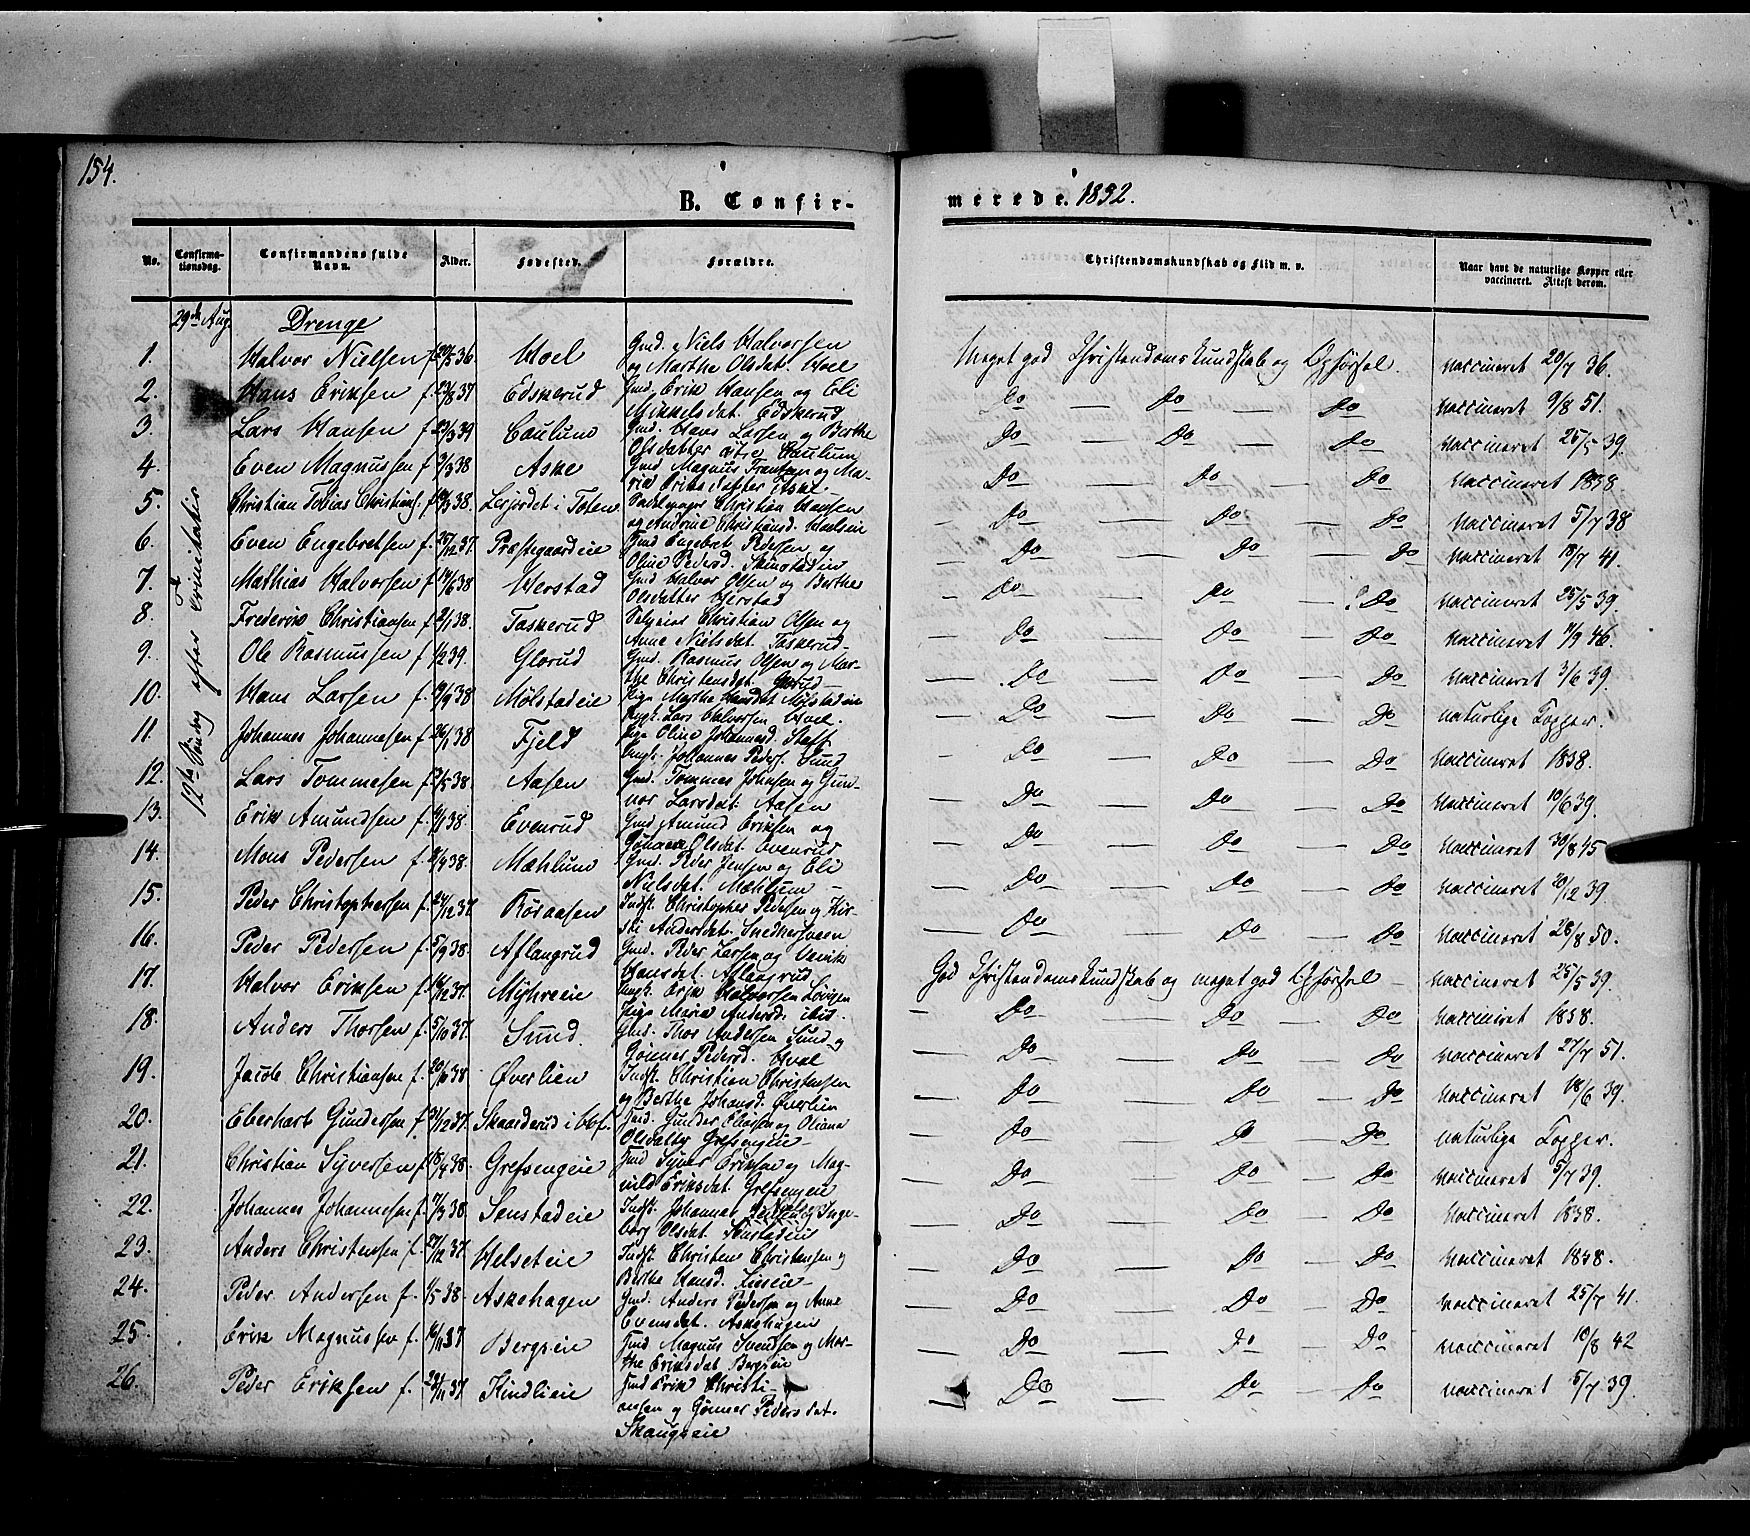 154.
B. Confir-
merede. 1852.
No.
Confirma-
tionsdag.
Confirmandens fulde
Navn.
Alder.
Fødested.
Forældre.
Christendomskundskab og Flid m. v.
Naar havt de naturlige Kopper eller
vaccineret. Attest derom.
29de Aug.
12te Søndag efter Trinitatis
Drenge
1. Halvor Nielsen f. 20/5 36 Hoel Gmd. Niels Halvorsen
og Marthe Olsdat. Hoel
Meget god Christendomskundskab og Opførsel. Vaccineret 20/7 36.
2. Hans Eriksen f. 23/8 37 Edskerud Gmd. Erik Hansen og Eli
Mikkelsdat. Edskerud
Do — Do — Do Vaccineret 9/8 51.
3. Lars Hansen f. 23/3 39 Gmd. Hans Larsen og Berthe
Olsdatter
Do — Do — Do Vaccineret 25/5 39.
4. Even Magnussen f. 3/3 38 Aske Gmd Magnus Frantsen og Ma-
ria Eriksdatter Aske.
Do — Do — Do Vaccineret 1838
5. Christian Tobias Christians. f. 38. i Toten Christian Hansen
og Andrine Christiansd.
— Do — Do — Do Vaccineret 5/7 38
6. Even Engebretsen f. 25/12 37. Præstegaardeie Gmd Engebret Pedersen og
Oline Pedersd.
— Do — Do — Do Vaccineret 18/7 41.
7. Mathias Halvorsen f. 14/6 38 Herstad Gmd Halvor Olsen og Berthe
Olsdatter Herstad
— Do — Do — Do Vaccineret 25/5 39.
8. Frederik Christiansen f. 2/1 38. Taskerud Selveier Christian Olsen og
Anne Nielsdat. Taskerud.
— Do — Do — Do Vaccineret 46.
9. Ole Rasmussen f. 1/2 39. Glorud Gmd. Rasmus Olsen og Mar-
the Christensdat. Glorud —
— Do — Do — Do Vaccineret 3/6 39.
10. Hans Larsen f. 38 Mølstadeie Pige Marthe Hansdat. Mølstadeie
Ungk. Lars Halvorsen Hoel.
— Do — Do — Do naturlige Kopper.
11. Johannes Johannesen f. 26/1 38 Fjeld Pige Oline Johannesd. Staff
Ungk. Johannes Peders. Sund
— Do — Do — Do Vaccineret 1838.
12. Lars Tommesen f. 38. Aasen Gmd. Tommes Johnsen og Gun-
nor Larsdat. Aasen
— Do — Do — Do Vaccineret 10/6 39.
13. Erik Amundsen f. 38. Evenrud Gmd Amund Eriksen og
Gønner Olsdat. Evenrud
— Do — Do — Do Vaccineret 30/8 45
14. Mons Pedersen f. 38. Mæhlum Gmd. Peder Jensen og Eli
Nielsdat. Mæhlum —
— Do — Do — Do Vaccineret 20/12 39.
15. Peder Christophersen f. 37 Røraasen Indst. Christopher Pedersen og Kir-
sti Andersdat.
— Do — Do — Do Vaccineret 28/8 50.
16. Peder Pedersen f. 5/9 38. Aflangrud Gmd. Peder Larsen og
Hansdat. Aflangrud
God Christendomskundskab og meget god Opførsel — Vaccineret 25/5 39.
17. Halvor Eriksen f. 16/12 37. Myhreie Ungk. Erik Halvorsen
Pige Maria Andersd. ibid.
— Do — Do — Do Vaccineret 1838.
18. Anders Thorsen f. 5/10 37. Sund. Gmd. Thor Andersen Sund og
Gønner Pedersd. Hval
— Do — Do — Do Vaccineret 27/7 51.
19. Jacob Christiansen f. 38 Øverlien Indst. Christian Christensen
og Berthe Johansd. Øverlien
— Do — Do — Do Vaccineret 18/6 39.
20. Eberhart Gundersen f. 31/12 37. Skaarderud i Gmd. Gunder Eliassen og Oliana
Olsdatter Grefsengeie —
— Do — Do — Do naturlige Kopper.
21. Christian Syversen f. 18/4 38. Grefsengeie Gmd Syver Eriksen og Mag-
nild Eriksdat. Grefsengeie
— Do — Do — Do Vaccineret 5/7 39.
22. Johannes Johannesen f. 7/3 38 Sonstadeie Indst. Johannes og Inge-
borg Olsdat. Sonstadeie
— Do — Do — Do Vaccineret 1838.
23. Anders Christensen f. 27/12 37. Helseteie Indst. Christen Christensen og
Berthe Hansd.
— Do — Do — Do Vaccineret 1838.
24. Peder Andersen f. 1/5 38. Askehagen Gmd. Anders Pedersen og Anne
Evensdat. Askehagen
— Do — Do — Do Vaccineret 25/7 41.
25. Erik Magnussen f. 16/11 37 Bergseie Gmd Magnus Svendsen og Mar-
the Eriksdat Bergseie
— Do — Do — Do Vaccineret 10/8 42
26. Peder Eriksen f. 24/11 37. Kindlieie Gmd Erik Christi-
ansen og Gønner Pedersdat.
Skaugseie
— Do — Do — Do Vaccineret 5/7 39.